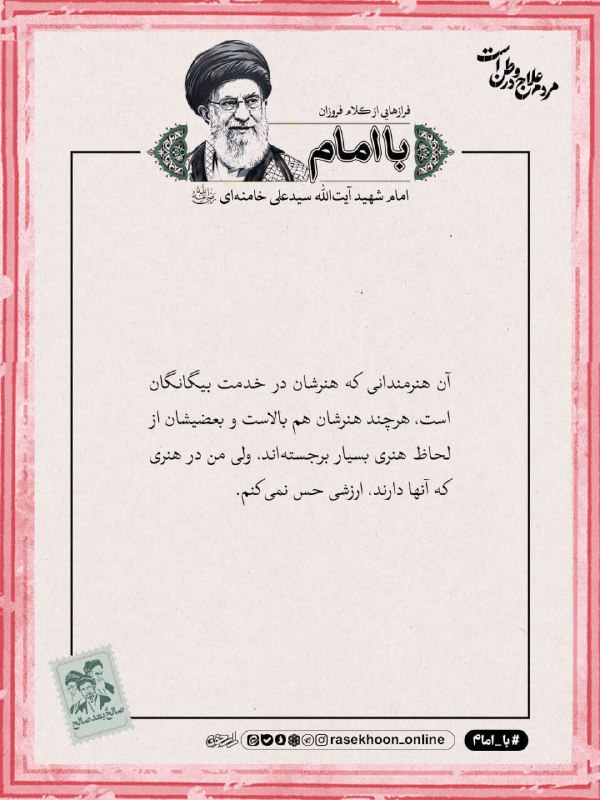 مردم علاج در وطن است
فرازهایی از کلام فروزان
با امام
امام شهید آیت‌الله سیدعلی خامنه‌ای
آن هنرمندانی که هنرشان در خدمت بیگانگان
است، هرچند هنرشان هم بالاست و بعضیشان از
لحاظ هنری بسیار برجسته‌اند، ولی من در هنری
که آنها دارند، ارزشی حس نمی‌کنم.
صالح بعد صالح
#با_امام
rasekhoon_online